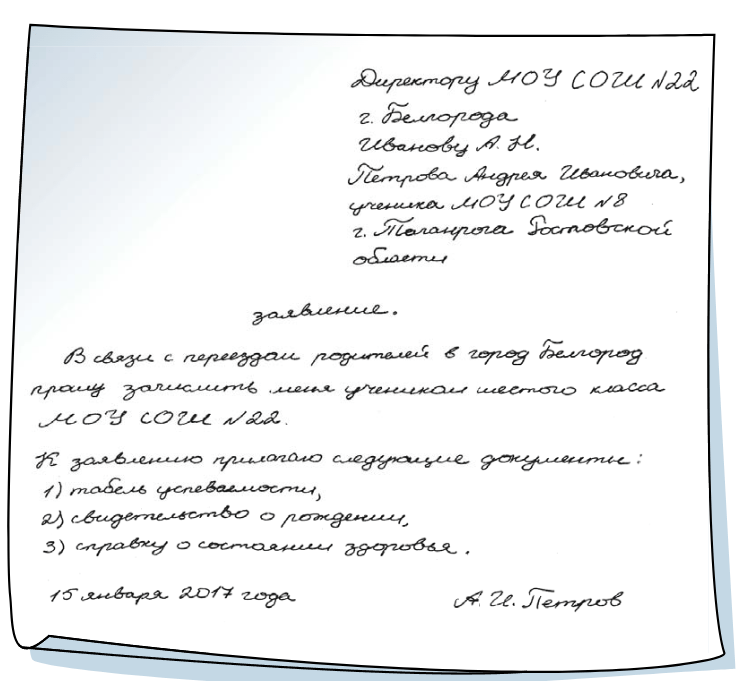 Директору МОУ СОШ №22
г. Белгорода
Иванову А. Н.
Петрова Андрея Ивановича,
ученика МОУ СОШ №8
г. Таганрога Ростовской
области
заявление.
В связи с переездом родителей в город Белгород
прошу зачислить меня учеником шестого класса
МОУ СОШ №22.
К заявлению прилагаю следующие документы:
1) табель успеваемости,
2) свидетельство о рождении,
3) справку о состоянии здоровья.
15 января 2017 года А. И. Петров